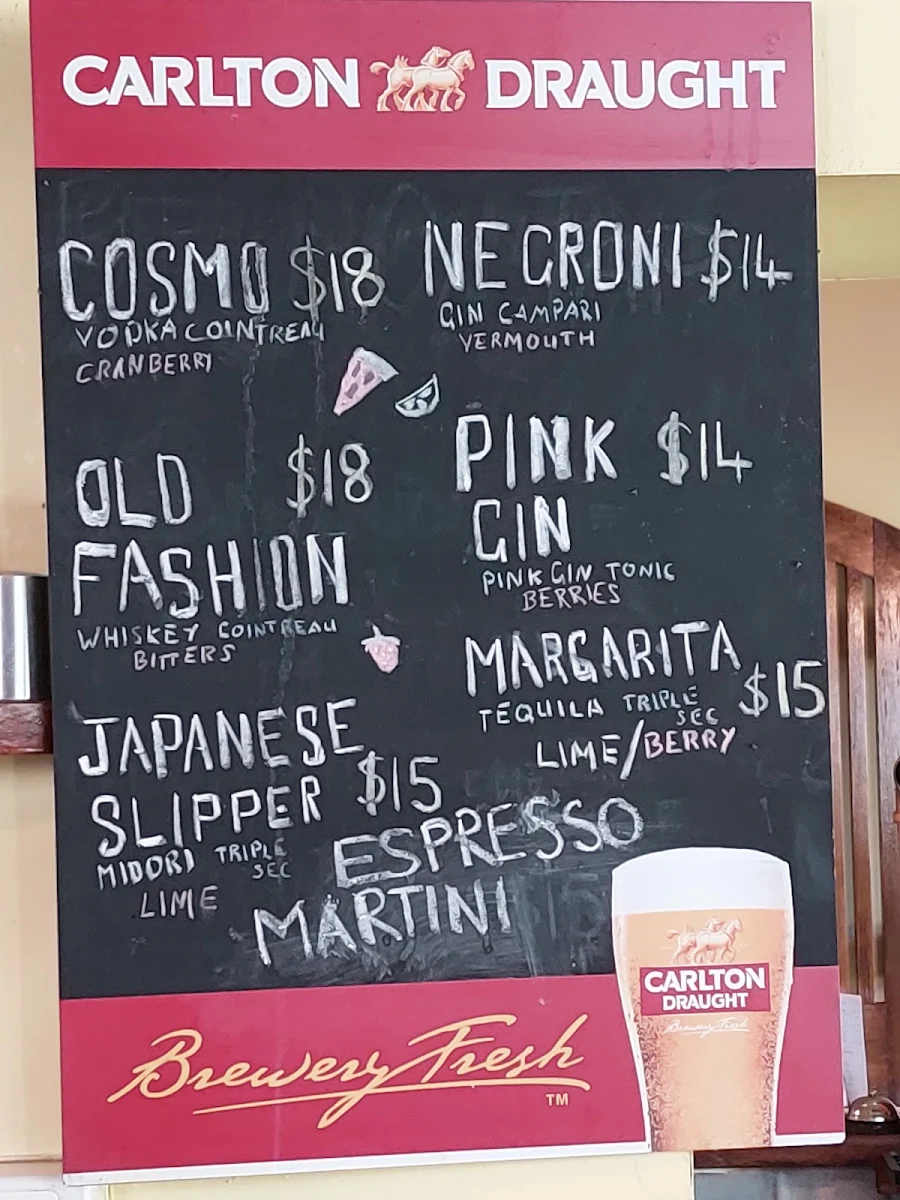 CARLTON DRAUGHT
COSMO $18
VODKA COINTREAU
CRANBERRY
NEGRONI $14
GIN CAMPARI
VERMOUTH
OLD $18
FASHION
WHISKEY COINTREAU
BITTERS
PINK $14
GIN
PINK GIN TONIC
BERRIES
MARGARITA $15
TEQUILA TRIPLE
SEC
LIME/BERRY
JAPANESE
SLIPPER $15
MIDORI TRIPLE
SEC
LIME
ESPRESSO
MARTINI
CARLTON
DRAUGHT
Brewery Fresh
Brewery Fresh
TM